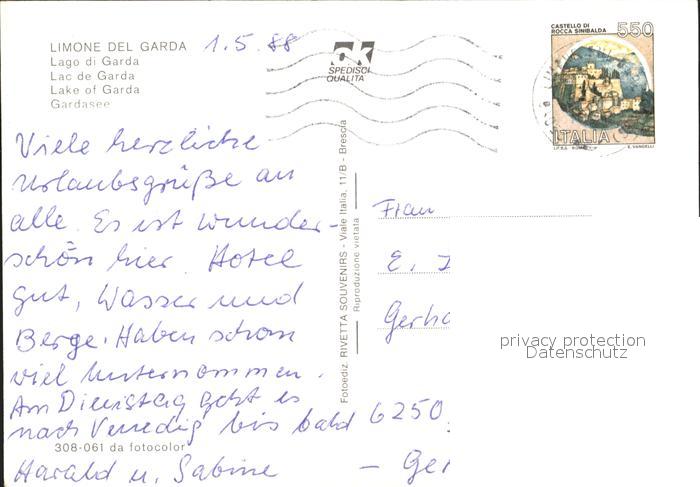 LIMONE DEL GARDA 1.5.88
Lago di Garda
Lac de Garda
Lake of Garda
Gardasee
Viele herzliche
Urlaubsgrüße an
alle. Es ist wunder-
schön hier. Hotel
gut, Wasser und
Berge. Haben schon
viel unternommen.
Am Dienstag geht es
nach Venedig bis bald
308-061 da fotocolor
Harald u. Sabine
SPEDISCI
QUALITÀ
Fotoediz. RIVETTA SOUVENIRS - Viale Italia, 11/B - Brescia
Riproduzione vietata
CASTELLO DI
ROCCA SINIBALDA
550
ITALIA
I.P.Z.S. ROMA
E. VANGELLI
Frau
E. I
Gerha
6250
- Ger
privacy protection
Datenschutz